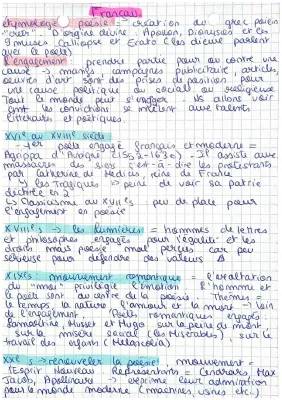 Français
étymologie poésie : création du grec poiein
"créer". D'origine divine : Apollon, Dionysos et les
9 muses Calliope et Erato (les dieux parlent
avec le poète)
L'engagement : prendre partie pour ou contre une
cause → manifs, campagnes publicitaire, articles,
oeuvres d'art sont des prises de position pour
une cause politique ou sociale ou religieuse
Tout le monde peut s'engager. Nous allons voir
dont les convictions se mêlent aux talents
littéraires et poétiques.
XVIe au XVIIIe siècle
- 1er poète engagé français et moderne =
Agrippa d'Aubigné (1552-1630) - Il assiste aux
massacres des siens c'est-à-dire les protestants
par Catherine de Médicis, reine de France
↳ les Tragiques => peine de voir sa patrie
déchirée en 2
↳ Classicisme au XVIIe s peu de place pour
l'engagement en poésie
XVIIIe s → les lumières = hommes de lettres
et philosophes engagés pour l'égalité et les
droits mais poésie mal perçue car peu
sérieuse pour défendre des valeurs
XIXe s mouvement romantique = l'exaltation
du "moi" privilégie l'émotion l'homme et
le poète sont au centre de la poésie. Thèmes =
le temps, la nature l'amour et la mort → loin
de l'engagement. (Poètes romantiques engagés
Lamartine, Musset et Hugo sur la peine de mort
sur la misère sociale (les Misérables), sur le
travail des enfants (Melancholia)
XXe s → renouveler la poésie mouvement =
l'Esprit Nouveau Représentants = Cendrars, Max
Jacob, Apollinaire → exprime leur admiration
pour le monde moderne (machines, usines etc.)